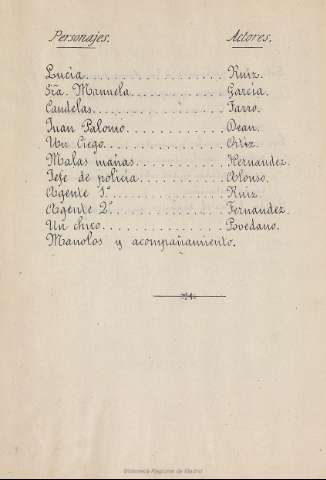 Personajes. Actores.
Lucia. . . . . . . . . . . . . . . . . . Ruiz.
Sra. Manuela. . . . . . . . . . . . . Garcia.
Candelas. . . . . . . . . . . . . . . . Farro.
Juan Palomo. . . . . . . . . . . . . Dean.
Un Ciego. . . . . . . . . . . . . . . . Ortiz.
Malas mañas. . . . . . . . . . . . . Hernandez.
Jefe de policia. . . . . . . . . . . . Alonso.
Agente 1º. . . . . . . . . . . . . . . Ruiz.
Agente 2º. . . . . . . . . . . . . . . Fernandez.
Un chico. . . . . . . . . . . . . . . . Povedano.
Manolos y acompañamiento.
Biblioteca Regional de Madrid